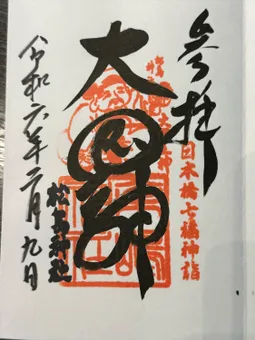 参拝
日本橋七福神詣
大国神
松島神社
令和六年二月九日